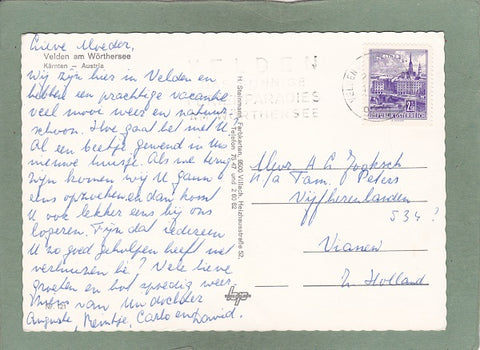 Lieve Moeder,
Velden am Wörthersee
Kärnten - Austria
Wij zijn hier in Velden en
hebben een prachtige vacantie
veel mooi weer en natuur
schoon. Hoe gaat het met U
Al een beetje gewend in Uw
nieuwe huisje. Als we terug
zijn komen wij U gauw
eens opzoeken en dan komt
U ook lekker eens bij ons
logeren. Fijn dat iedereen
U zo goed geholpen heeft met
verhuizen hè? Vele lieve
groeten en tot spoedig weer
van Uw dochter
Auguste, Carlo en David.
H. Steinmann, Farbkarten, 9500 Villach, Heizhausstraße 52,
Telefon 75 47 und 2 60 82
VELDEN
PARADIES
WÖRTHERSEE
VELDEN
2.50
REPUBLIK ÖSTERREICH
Mevr A C
p/a Fam. Peters
Vijfheerenlanden
534 ?
Vianen
Z. Holland